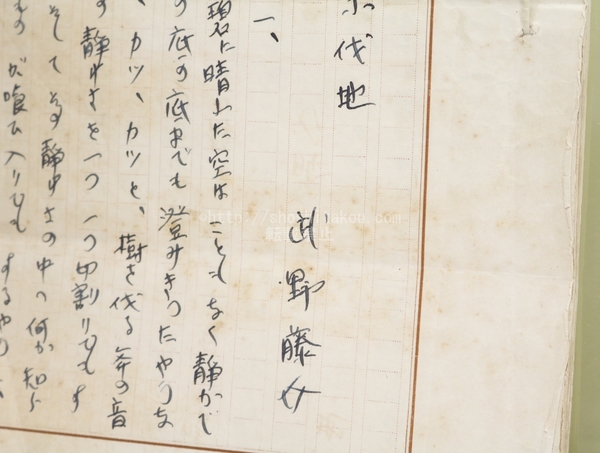 伐地
武野藤介
一、
碧に晴れた空はこともなく静かで
の底の底までも澄みきつたやうな
、カツ、カツと、樹を伐る斧の音
の静かさを一つ一つ切割りでもす
そしてその静かさの中へ何か知ら
ものが喰ひ入りでもするやう